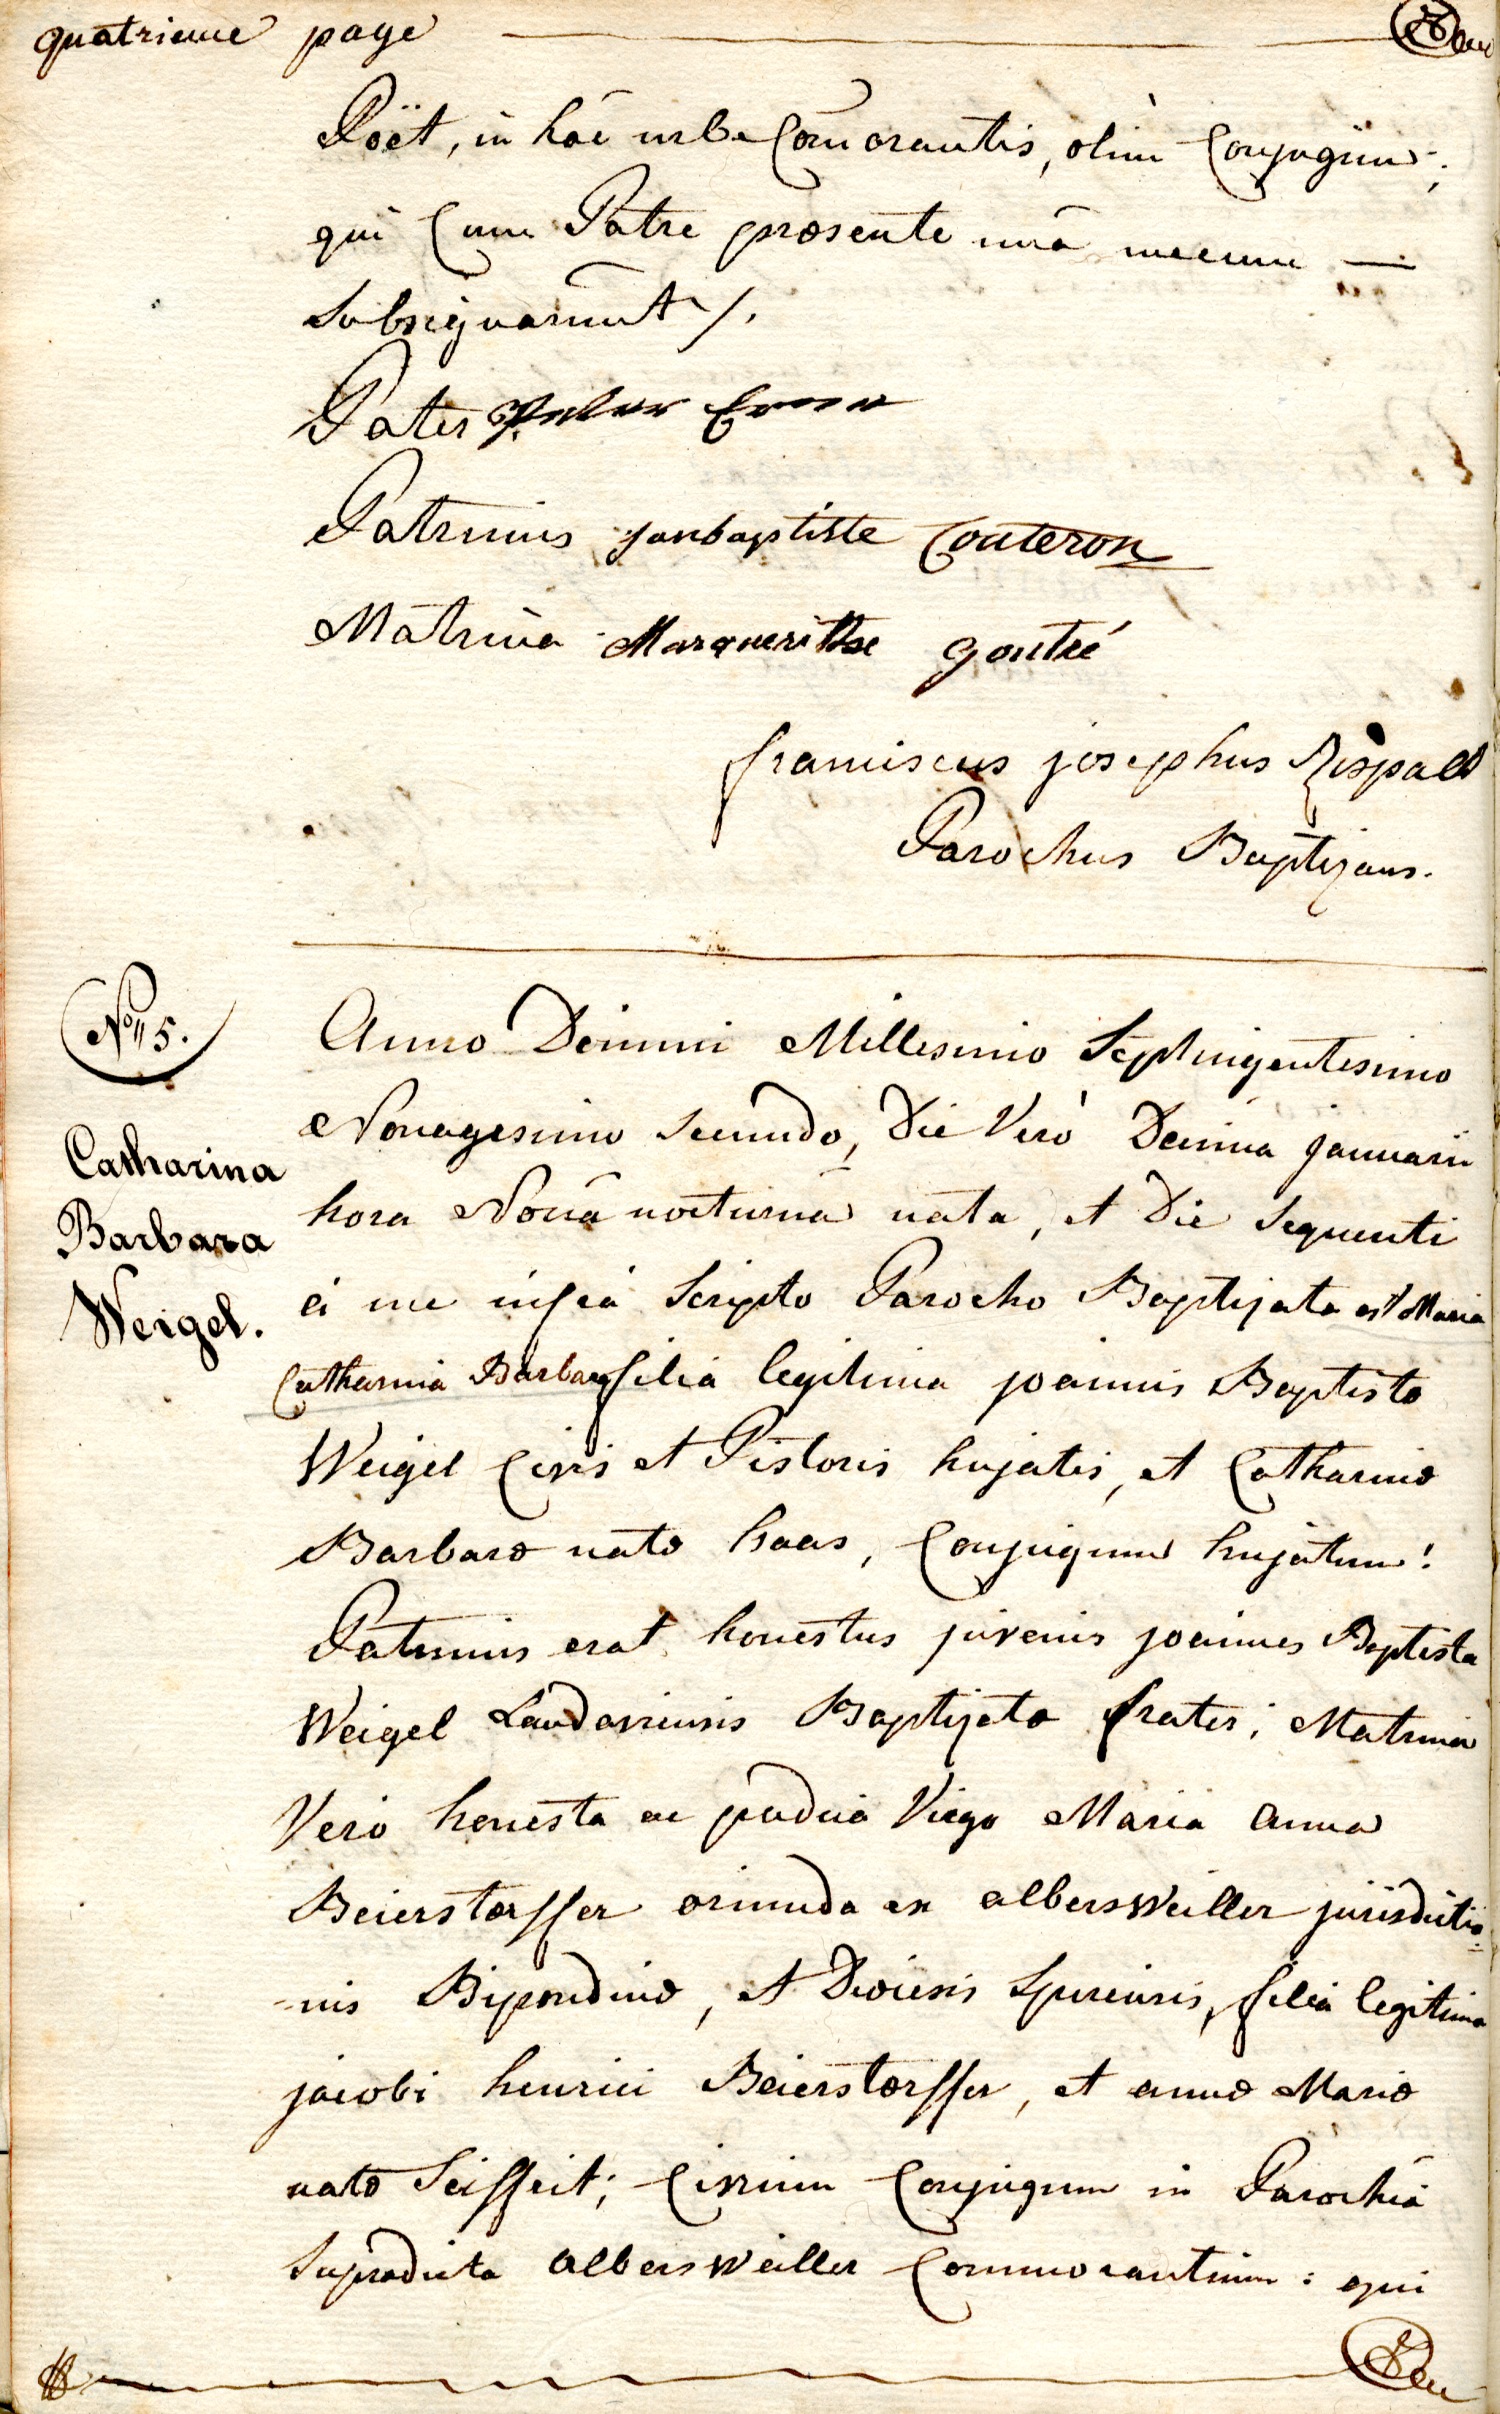 quatrieme page
Poët, in hâc urbe Comorantis, olim Conjugum;
qui Cum Patre præsente unà mecum —
Subsignarunt /.
Pater Peter
Patrinus janbaptiste Couteron
Matrina Margueritte goutté
franciscus josephus Rispald
Parochus Baptizans.
No 5.
Catharina
Barbara
Weigel.
Anno Domini Millesimo Septingentesimo
Nonagesimo secundo, Die Verò Decima januarii
hora Nonâ nocturnâ nata, et Die Sequenti
à me infrà Scripto Parocho Baptizata est Maria
Catharina Barbara filia legitima joannis Baptistæ
Weigel Civis et Pistoris hujatis, et Catharinæ
Barbaræ natæ haas, Conjugum hujatum!
Patrinus erat honestus juvenis joannes Baptista
Weigel Landaviensis Baptizatæ frater; Matrina
Verò honesta ac pudica Virgo Maria anna
Beierstorffer oriunda ex alberswweiller jurisdictio-
-nis Bipontinæ, et Diœcesis Spirensis, filia legitima
jacobi henrici Beierstorffer, et annæ Mariæ
natæ Seiffeit; Civium Conjugum in Parochiâ
Supradicta albersweiller Commorantium: qui